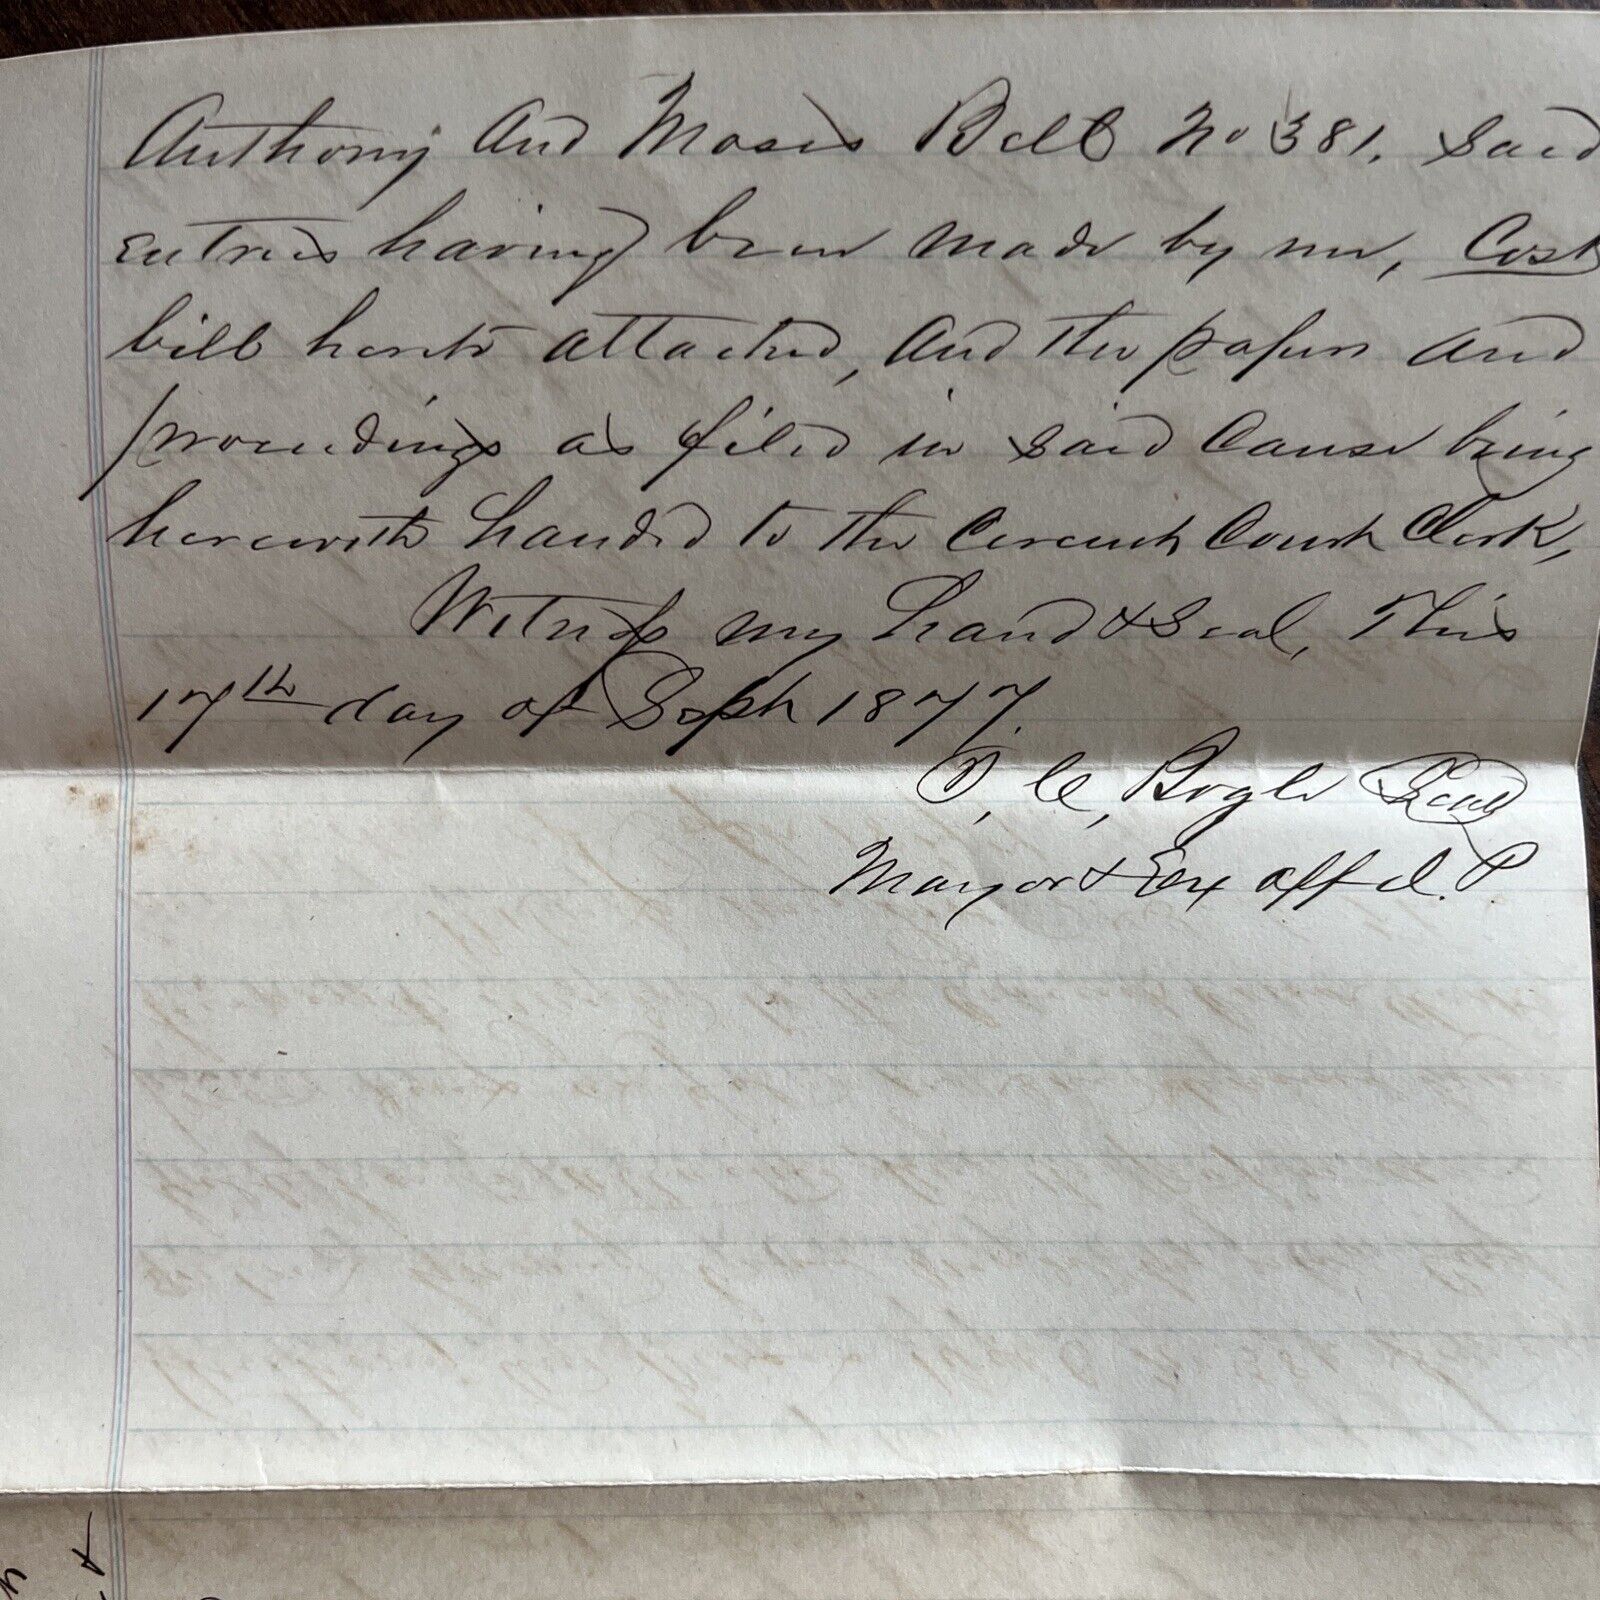 Anthony And Moses Bell No 381. Said
Entries having been made by me, Cost
bill hereto attached, And the papers and
proceedings as filed in said Cause being
herewith handed to the Circuit Court Clerk,
Witness my hand & Seal, This
17th day of Sept 1877.
P. C, Bogle Seal
Mayor & Ex off J. P.